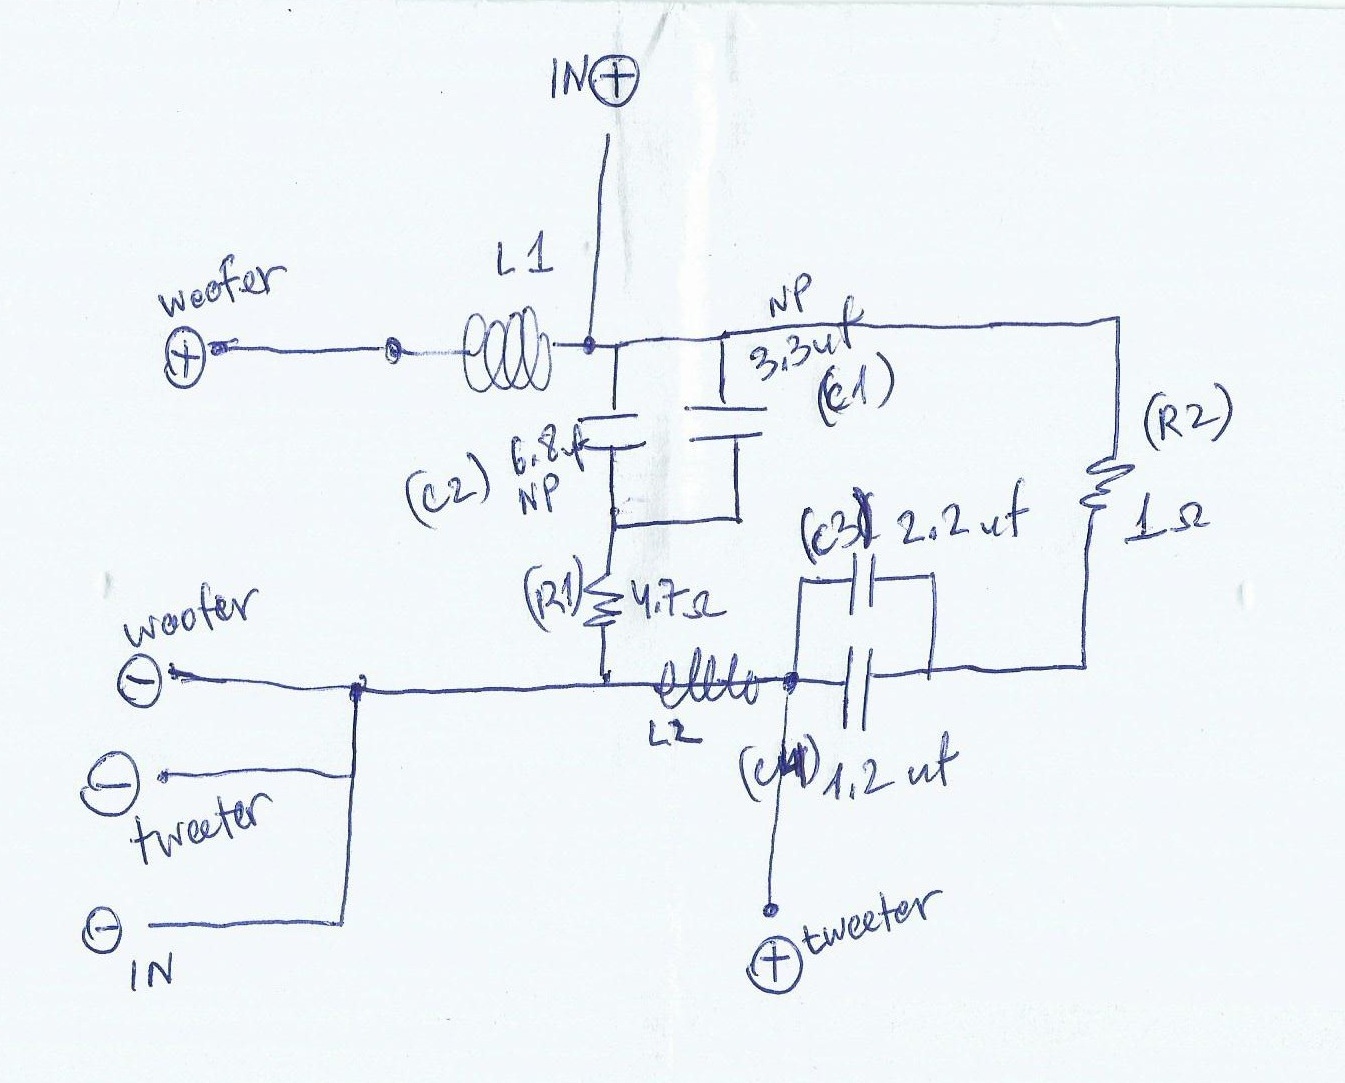 IN ⊕
L1
woofer
⊕
NP
3.3uf
(C1)
(R2)
1Ω
6.8uf
(C2)
NP
(C3) 2.2uf
(R1) 4.7Ω
woofer
⊖
L2
(C4) 1.2uf
⊖
tweeter
⊖
IN
⊕ tweeter